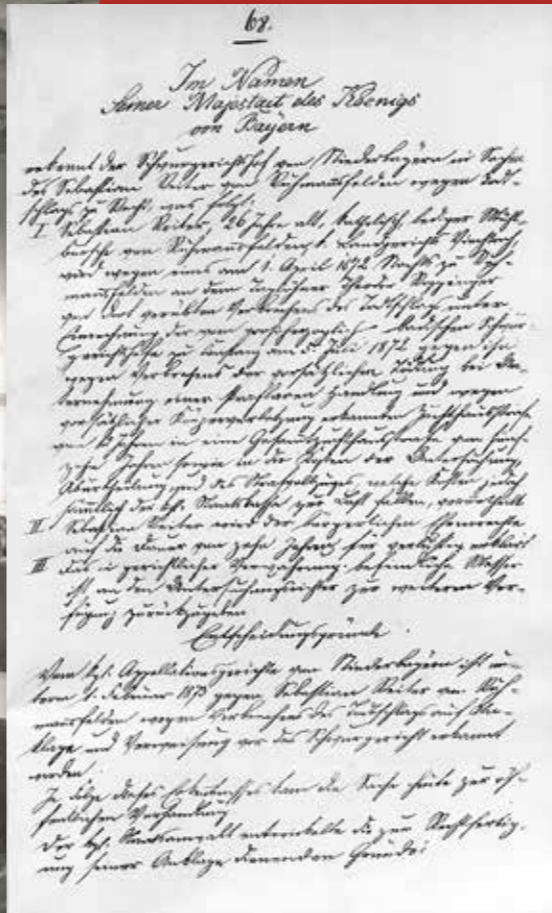 68.
Im Namen
Seiner Majestaet des Koenigs
von Bayern
erkennt der Schwurgerichtshof von Niederbayern in Sachen
des Sebastian Reiter von Ruhmannsfelden wegen Todt-
schlags zu Recht, was folgt:
I Sebastian Reiter, 26 Jahre alt, katholisch, lediger Müller-
bursche von Ruhmannsfelden, k. Landgerichts Viechtach,
wird wegen eines am 1. April 1872 Nachts zu Ruh-
mannsfelden an dem Taglöhner Theodor
von dort verübten Verbrechens des Todtschlags unter
Einrechnung der vom großherzoglich badischen Schwur-
gerichtshofe zu Konstanz am 5. Juli 1872 gegen ihn
wegen Verbrechens der vorsätzlichen Tödtung bei Un-
ternehmung einer strafbaren Handlung und wegen
vorsätzlicher Körperverletzung erkannten Zuchthausstrafe
von in eine Gesammtzuchthausstrafe von fünf-
zehn Jahren sowie in die Kosten der Untersuchung,
Aburtheilung und des Strafvollzuges, welche Kosten jedoch
sämtlich der kgl. Staatskasse zur Last fallen, verurtheilt
II Sebastian Reiter wird der bürgerlichen Ehrenrechte
auf die Dauer von zehn Jahren für verlustig erklärt
III Das in gerichtlicher Verwahrung befindliche Messer
ist an den Untersuchungsrichter zur weiteren Ver-
fügung zurückzugeben
Entscheidungsgründe.
Vom kgl. Appellationsgerichte von Niederbayern ist un-
term 1. Februar 1873 gegen Sebastian Reiter von Ruh-
mannsfelden wegen Verbrechens des Todtschlags auf An-
klage und Verweisung vor das Schwurgericht erkannt
worden.
In Folge dieses Erkenntnisses kam die Sache heute zur öf-
fentlichen Verhandlung
Der kgl. Staatsanwalt entwickelte die zur Rechtfertig-
ung seiner Anklage dienenden Gründe: